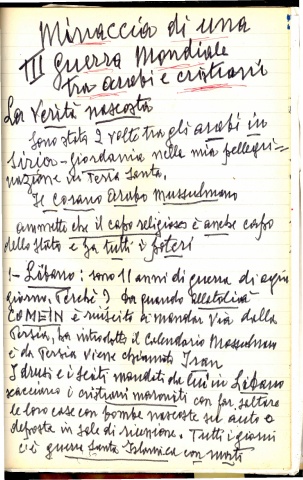 Minaccia di una
III guerra Mondiale
tra arabi e cristiani
La Verità nascosta
Sono stato 2 volte tra gli arabi in
Siria - giordania nella mia pellegri-
nazione in Terra Santa.
Il Corano Arabo Mussulmano
ammette che il capo religioso è anche capo
dello stato e ha tutti i poteri
1- Libano: sono 11 anni di guerra di ogni
giorno. Perché? Da quando
COMEIN è riuscito a mandar via dalla
Persia, ha introdotto il Calendario Mussulmano
e da Persia viene chiamato Iran
I drusi e i sciiti mandati da lui in Libano
scacciano i cristiani maroniti con far saltare
le loro case con bombe nascoste su auto o
deposta in sale di riunione. Tutti i giorni
c'è guerra Santa Islamica con morti